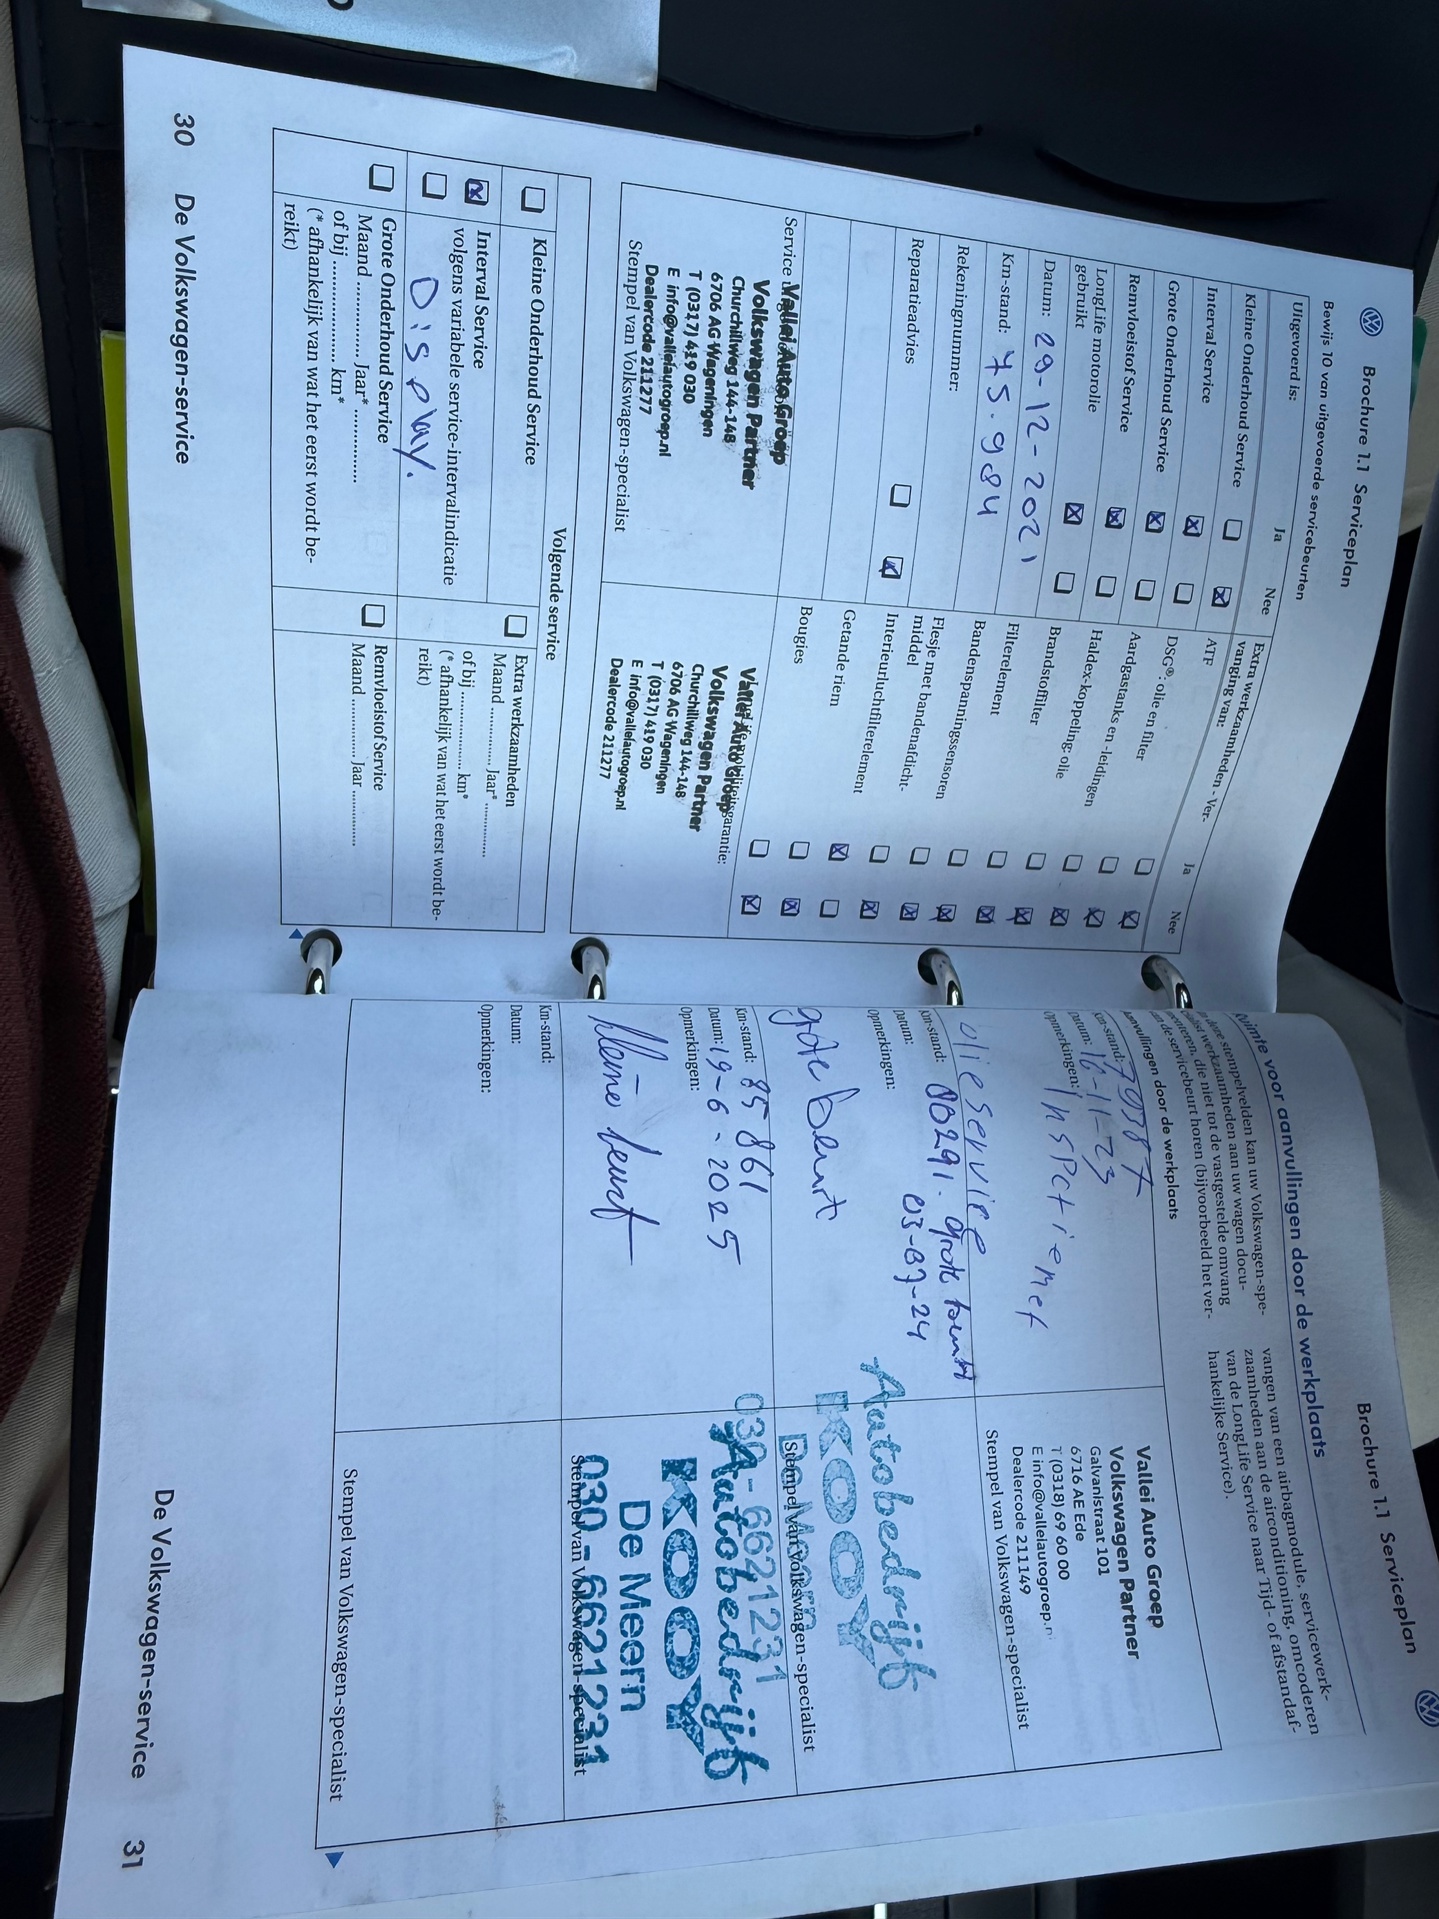 Brochure 1.1 Serviceplan
Bewijs 10 van uitgevoerde servicebeurten
Uitgevoerd is:
Ja
Nee
Kleine Onderhoud Service
Interval Service
Grote Onderhoud Service
Remvloeistof Service
LongLife motorolie
gebruikt
Datum: 29-12-2021
Km-stand: 75.984
Rekeningnummer:
Reparatieadvies
Service
Vallei Auto Groep
Volkswagen Partner
Churchillweg 144-148
6706 AG Wageningen
T (0317) 419 030
E info@valleiautogroep.nl
Dealercode 211277
Stempel van Volkswagen-specialist
Extra werkzaamheden - Ver-
vanging van:
Ja
Nee
ATF
DSG®: olie en filter
Aardgastanks en -leidingen
Haldex-koppeling: olie
Brandstoffilter
Filterelement
Bandenspanningssensoren
Flesje met bandenafdicht-
middel
Interieurluchtfilterelement
Getande riem
Bougies
mobiliteitsgarantie:
Vallei Auto Groep
Volkswagen Partner
Churchillweg 144-148
6706 AG Wageningen
T (0317) 419 030
E info@valleiautogroep.nl
Dealercode 211277
Volgende service
Kleine Onderhoud Service
Interval Service
volgens variabele service-intervalindicatie
Display.
Grote Onderhoud Service
Maand ............... Jaar* ...............
of bij ..................... km*
(* afhankelijk van wat het eerst wordt be-
reikt)
Extra werkzaamheden
Maand ............ Jaar* ............
of bij ................. km*
(* afhankelijk van wat het eerst wordt be-
reikt)
Remvloeistof Service
Maand ............ Jaar ............
30 De Volkswagen-service
Brochure 1.1 Serviceplan
Ruimte voor aanvullingen door de werkplaats
stempelvelden kan uw Volkswagen-spe-
werkzaamheden aan uw wagen docu-
menteren, die niet tot de vastgestelde omvang
de servicebeurt horen (bijvoorbeeld het ver-
vangen van een airbagmodule, servicewerk-
zaamheden aan de airconditioning, omcoderen
van de LongLife Service naar Tijd- of afstandaf-
hankelijke Service).
Aanvullingen door de werkplaats
Km-stand: 79387
Datum: 16-11-23
Opmerkingen: Inspctie met
olie service
Vallei Auto Groep
Volkswagen Partner
Galvanistraat 101
6716 AE Ede
T (0318) 69 60 00
E info@valleiautogroep.nl
Dealercode 211149
Stempel van Volkswagen-specialist
Km-stand: 80291. grote beurt
Datum: 03-07-24
Opmerkingen:
grote beurt
Autobedrijf
KOOY
De Meern
030-6621231
Stempel van Volkswagen-specialist
Km-stand: 85861
Datum: 19-6-2025
Opmerkingen:
Kleine beurt
Autobedrijf
KOOY
De Meern
030-6621231
Stempel van Volkswagen-specialist
Km-stand:
Datum:
Opmerkingen:
Stempel van Volkswagen-specialist
De Volkswagen-service 31